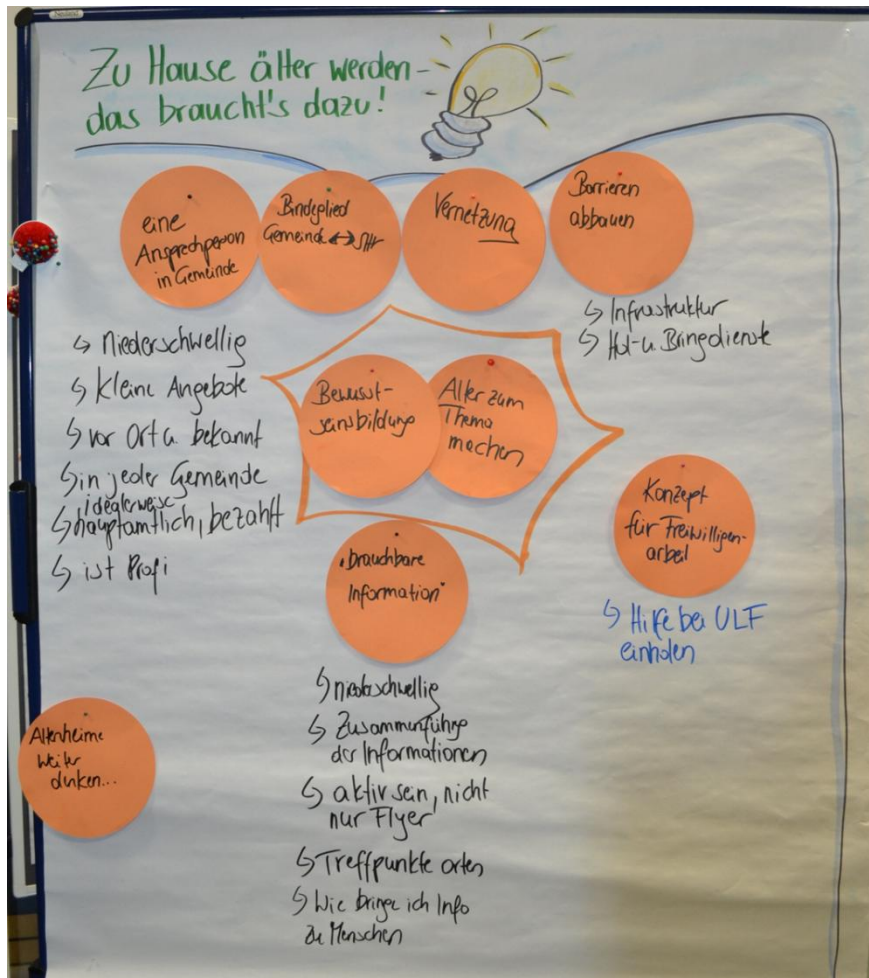 Zu Hause älter werden -
das braucht's dazu!
eine
Ansprechperson
in Gemeinde
Bindeglied
Gemeinde ↔ SHV
Vernetzung
Barrieren
abbauen
↳ Infrastruktur
↳ Hol- u. Bringdienste
↳ Niederschwellig
↳ Kleine Angebote
↳ vor Ort u. bekannt
↳ in jeder Gemeinde
idealerweise
↳ hauptamtlich, bezahlt
↳ ist Profi
Bewusst-
seinsbildung
Alter zum
Thema
machen
Konzept
für Freiwilligen-
arbeit
↳ Hilfe bei ULF
einholen
"brauchbare
Information"
↳ niederschwellig
↳ Zusammenführung
der Informationen
↳ aktiv sein, nicht
nur Flyer
↳ Treffpunkte orten
↳ Wie bringe ich Info
zu Menschen
Altenheime
weiter
denken...